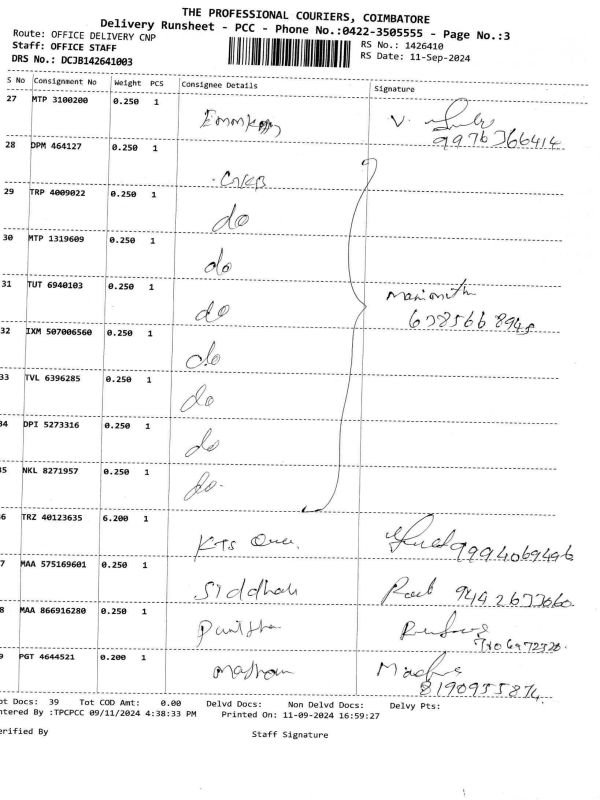 THE PROFESSIONAL COURIERS, COIMBATORE
Delivery Runsheet - PCC - Phone No.:0422-3505555 - Page No.:3
Route: OFFICE DELIVERY CNP
Staff: OFFICE STAFF
RS No.: 1426410
DRS No.: DCJB142641003
RS Date: 11-Sep-2024
S No Consignment No Weight PCS Consignee Details Signature
27 MTP 3100200 0.250 1 V.
9976366414
28 DPM 464127 0.250 1
29 TRP 4009022 0.250 1 do
30 MTP 1319609 0.250 1 do
31 TUT 6940103 0.250 1 do
32 IXM 507006560 0.250 1 do
33 TVL 6396285 0.250 1 do
34 DPI 5273316 0.250 1 do
35 NKL 8271957 0.250 1 do
6 TRZ 40123635 6.200 1 KTS 9994069496
7 MAA 575169601 0.250 1 Siddhah
8 MAA 866916280 0.250 1
9 PGT 4644521 0.200 1
8190955874
ot Docs: 39 Tot COD Amt: 0.00 Delvd Docs: Non Delvd Docs: Delvy Pts:
ntered By :TPCPCC 09/11/2024 4:38:33 PM Printed On: 11-09-2024 16:59:27
erified By Staff Signature